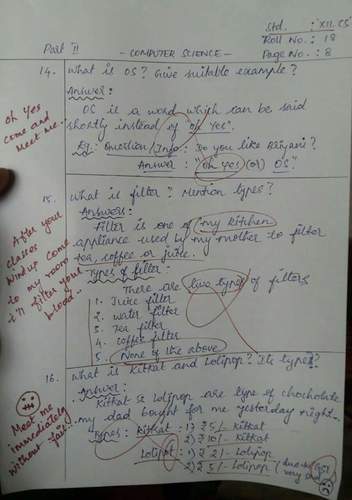 Std. : XII. CS
Roll No. : 18
Page No. : 8
Part II
- COMPUTER SCIENCE -
14. What is OS? Give suitable example?
Answer:
OS is a word which can be said
shortly instead of "oh Yes".
Eg: Question / Info: Do you like Biriyani?
Answer: "oh Yes" (or) OS"
Oh Yes
come and
meet me.
15. What is filter? Mention types?
Answer:
Filter is one of my kitchen
appliance used by my mother to filter
tea, coffee or juice.
Types of filter:
There are five types of filters
1. Juice filter
2. water filter
3. Tea filter
4. coffee filter
5. None of the above
After your
classes
windup come
to my room
I'll filter your
blood..
16. What is Kitkat and Lolipop? Its types?
Answer:
Kitkat & Lolipop are type of chocholate
my dad bought for me yesterday night.
Types: Kitkat: 1) ₹ 5/- Kitkat
2) ₹ 10/- Kitkat
Lolipop: 1) ₹ 2/- Lolipop
2) ₹ 5/- Lolipop (due to GST
very sad
Meet me
immediately
without fail